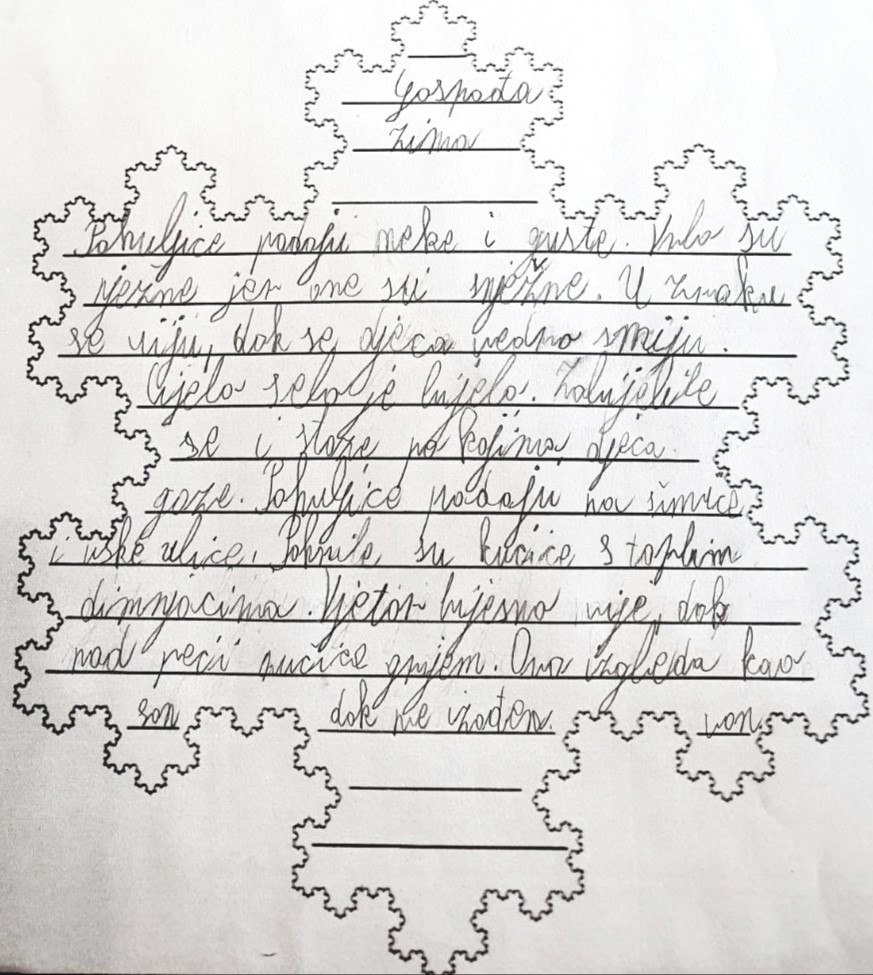 Gospođa
zima
Pahuljice padaju meke i guste. Vrlo su
nježne jer one su snježne. U zraku
se viju, dok se djeca vedro smiju.
Cijelo selo je bijelo. Zabijelile
se i staze po kojima djeca
gaze. Pahuljice padaju na šumice
i uske ulice. Pokrile su kućice s toplim
dimnjacima Vjetar bijesno vije, dok
nad peći ručice grijem. Ovo izgleda kao
san dok ne izađem van.